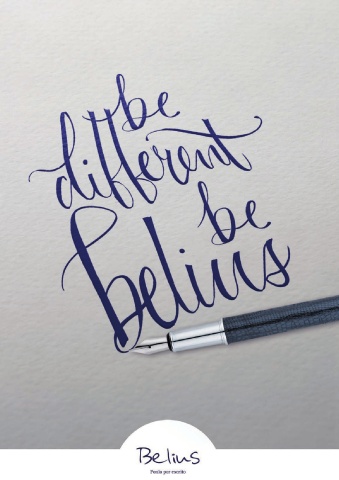 be
different
be
belius
Belius
Ponlo por escrito